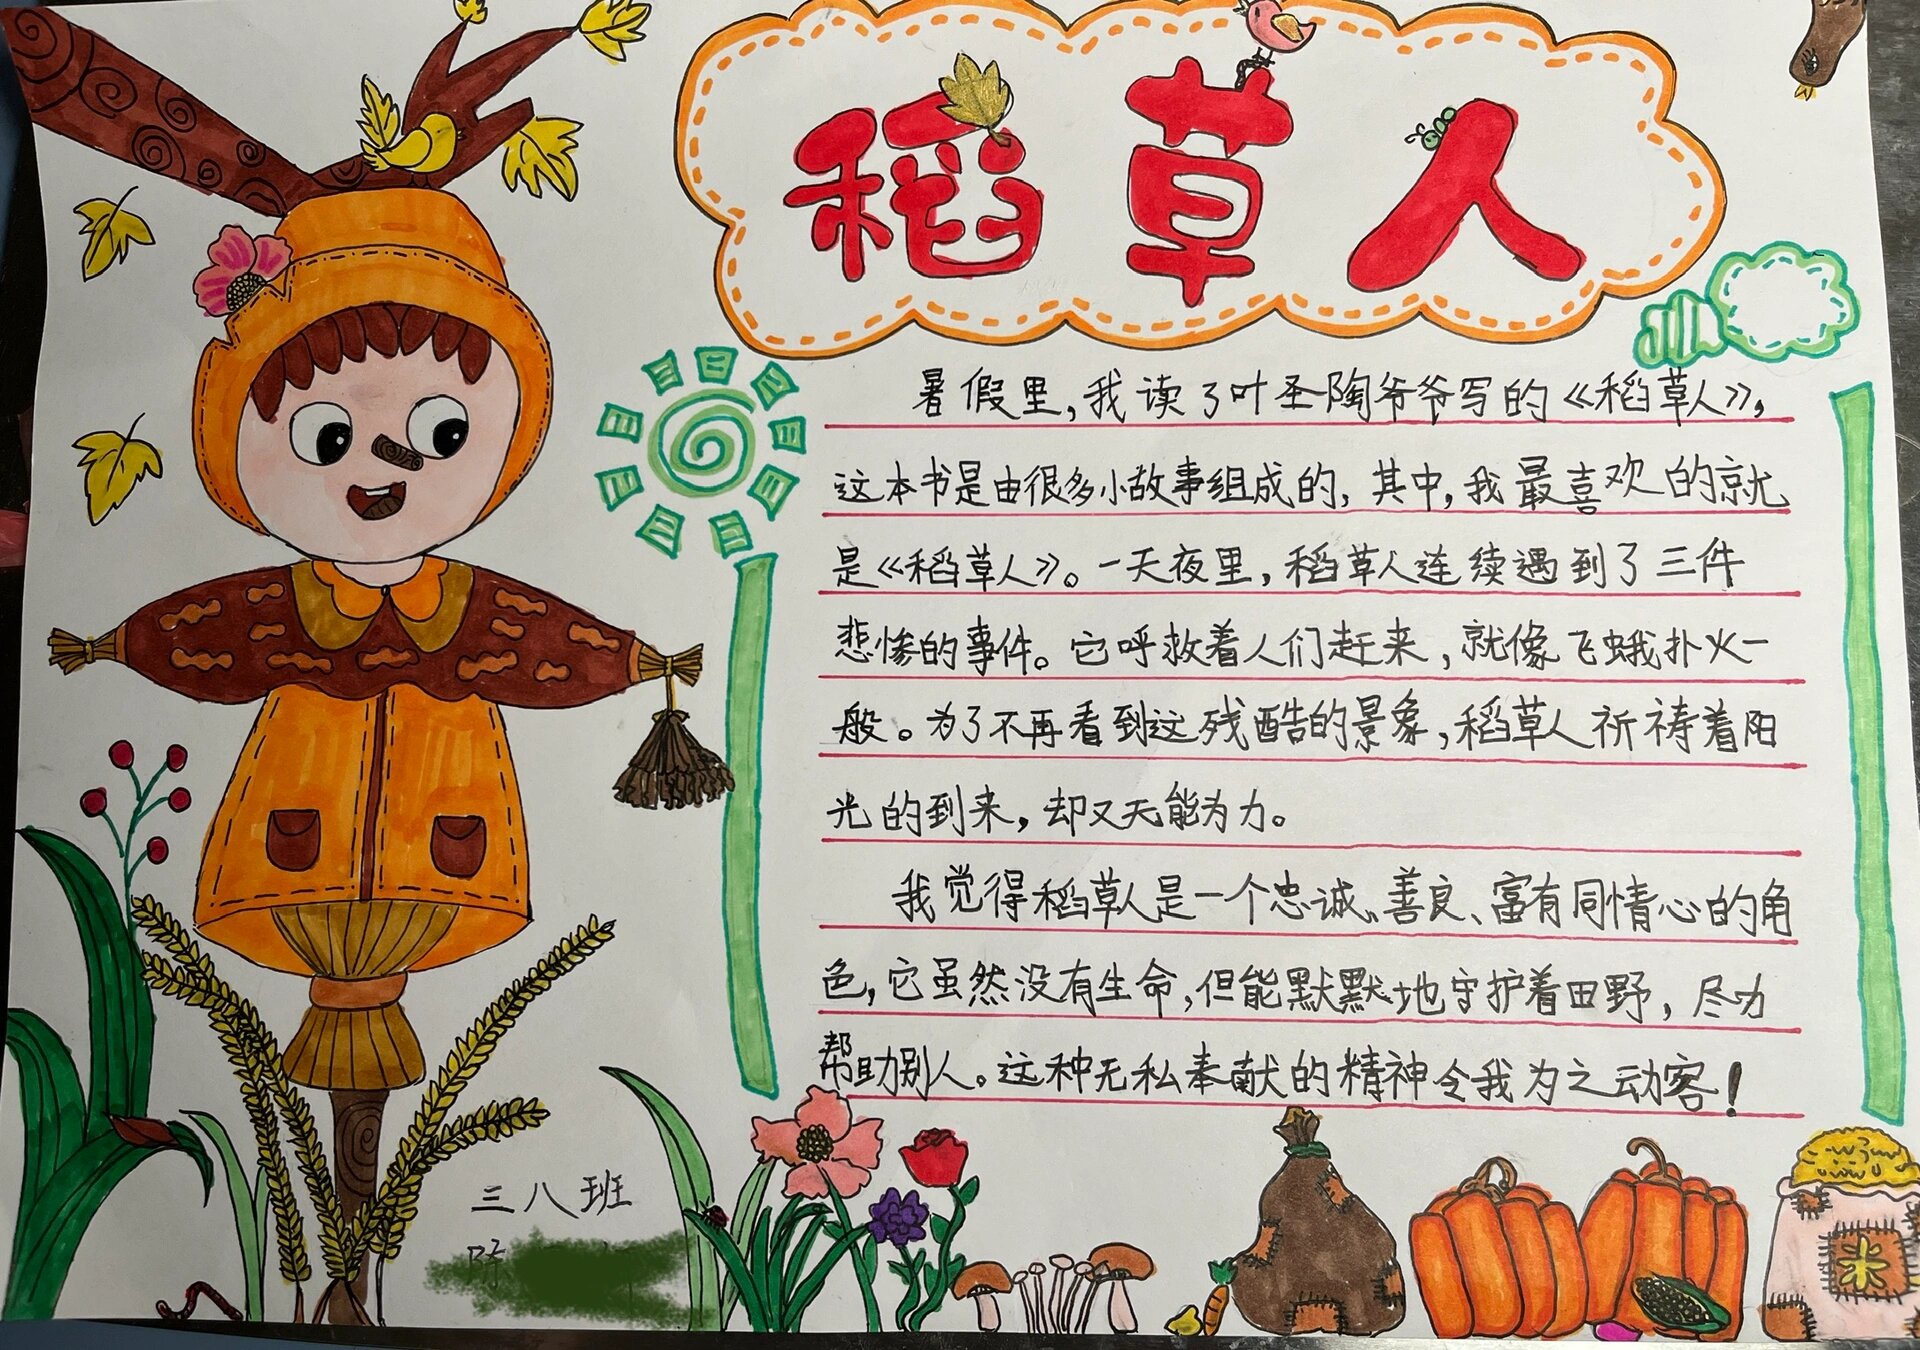 稻草人
暑假里，我读了叶圣陶爷爷写的《稻草人》，
这本书是由很多小故事组成的，其中，我最喜欢的就
是《稻草人》。一天夜里，稻草人连续遇到了三件
悲惨的事件。它呼救着人们赶来，就像飞蛾扑火一
般。为了不再看到这残酷的景象，稻草人祈祷着阳
光的到来，却又无能为力。
我觉得稻草人是一个忠诚、善良、富有同情心的角
色，它虽然没有生命，但能默默地守护着田野，尽力
帮助别人。这种无私奉献的精神令我为之动容！
三八班